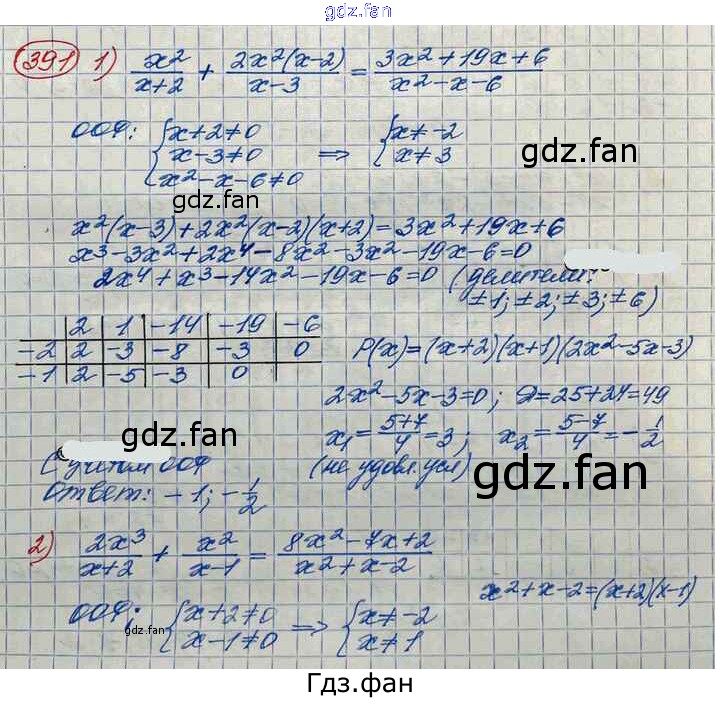 gdz.fan
391 1) x²/(x+2) + 2x²(x-2)/(x-3) = (3x²+19x+6)/(x²-x-6)
ООФ: {x+2≠0 ⇒ {x≠-2
x-3≠0 x≠3
x²-x-6≠0
gdz.fan
gdz.fan
x²(x-3)+2x²(x-2)(x+2)=3x²+19x+6
x³-3x²+2x⁴-8x²-3x²-19x-6=0
2x⁴+x³-14x²-19x-6=0 (делители:
±1; ±2; ±3; ±6)
| 2 | 1 | -14 | -19 | -6
-2 | 2 | -3 | -8 | -3 | 0
-1 | 2 | -5 | -3 | 0
P(x)=(x+2)(x+1)(2x²-5x-3)
2x²-5x-3=0; D=25+24=49
x₁=(5+7)/4=3; x₂=(5-7)/4=-1/2
(не удовл. усл)
gdz.fan
gdz.fan
С учётом ООФ
Ответ: -1; -1/2
2) 2x³/(x+2) + x²/(x-1) = (8x²-7x+2)/(x²+x-2)
x²+x-2=(x+2)(x-1)
ООФ: {x+2≠0 ⇒ {x≠-2
x-1≠0 x≠1
gdz.fan
gdz.fan
Гдз.фан